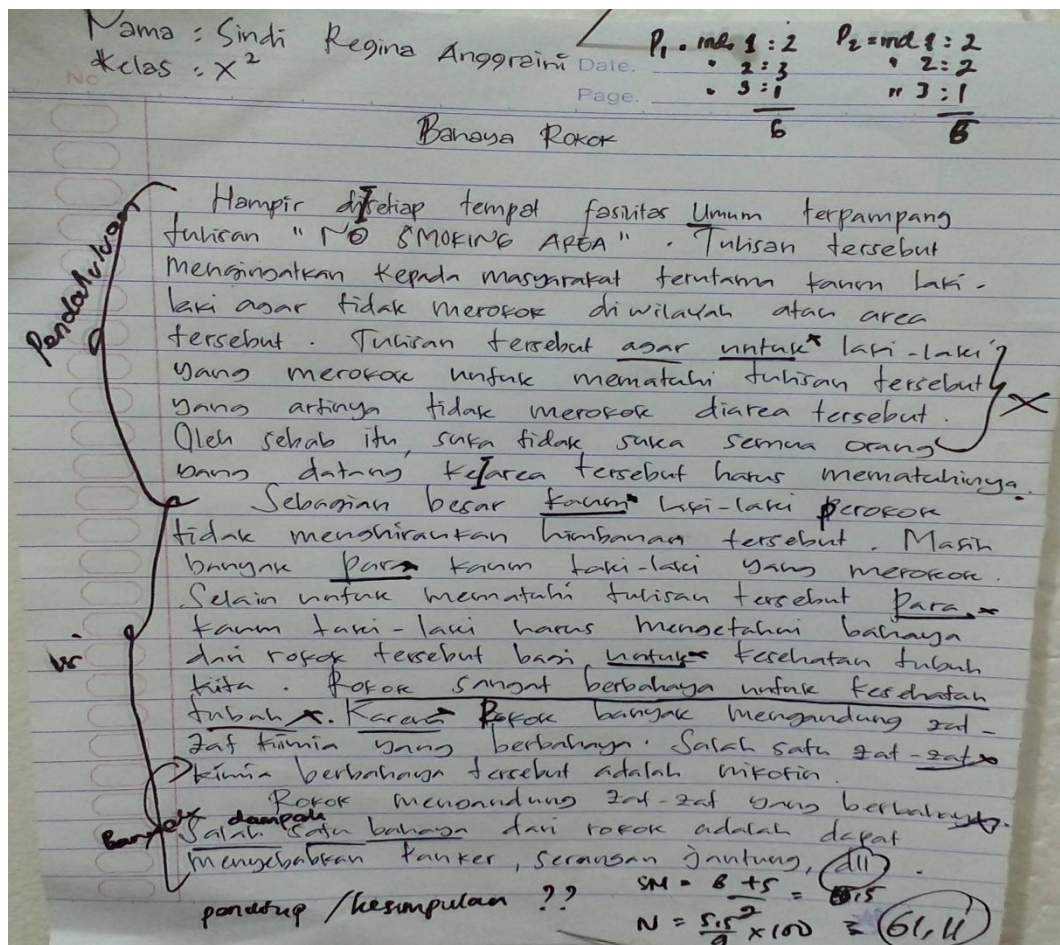 Nama : Sindi Regina Anggraini
Kelas : X²
No
Date.
Page.
P₁ = ind 1 : 2
" 2 : 3
" 3 : 1
6
P₂ = ind 1 : 2
" 2 : 2
" 3 : 1
5
Bahaya Rokok
Pendahuluan
Hampir disetiap tempat fasilitas Umum terpampang
tulisan " NO SMOKING AREA " . Tulisan tersebut
mengingatkan kepada masyarakat terutama kaum laki-
laki agar tidak merokok diwilayah atau area
tersebut . Tulisan tersebut agar untuk laki-laki
yang merokok untuk mematuhi tulisan tersebut
yang artinya tidak merokok diarea tersebut .
Oleh sebab itu, suka tidak suka semua orang
yang datang kearea tersebut harus mematuhinya.
Sebagian besar kaum laki-laki perokok
tidak menghiraukan himbauan tersebut . Masih
banyak para kaum laki-laki yang merokok .
Selain untuk mematuhi tulisan tersebut para
kaum laki-laki harus mengetahui bahaya
dari rokok tersebut bagi untuk kesehatan tubuh
kita . Rokok sangat berbahaya untuk kesehatan
tubuh . Karena Rokok banyak mengandung zat-
zat kimia yang berbahaya . Salah satu zat-zat
kimia berbahaya tersebut adalah nikotin .
Rokok mengandung zat-zat yang berbahaya.
Banyak dampak
Salah satu bahaya dari rokok adalah dapat
menyebabkan kanker, serangan jantung, dll .
penutup / kesimpulan ??
SM = 6 + 5 / 2 = 5,5
N = 5,5 / 9 x 100 = 61,11